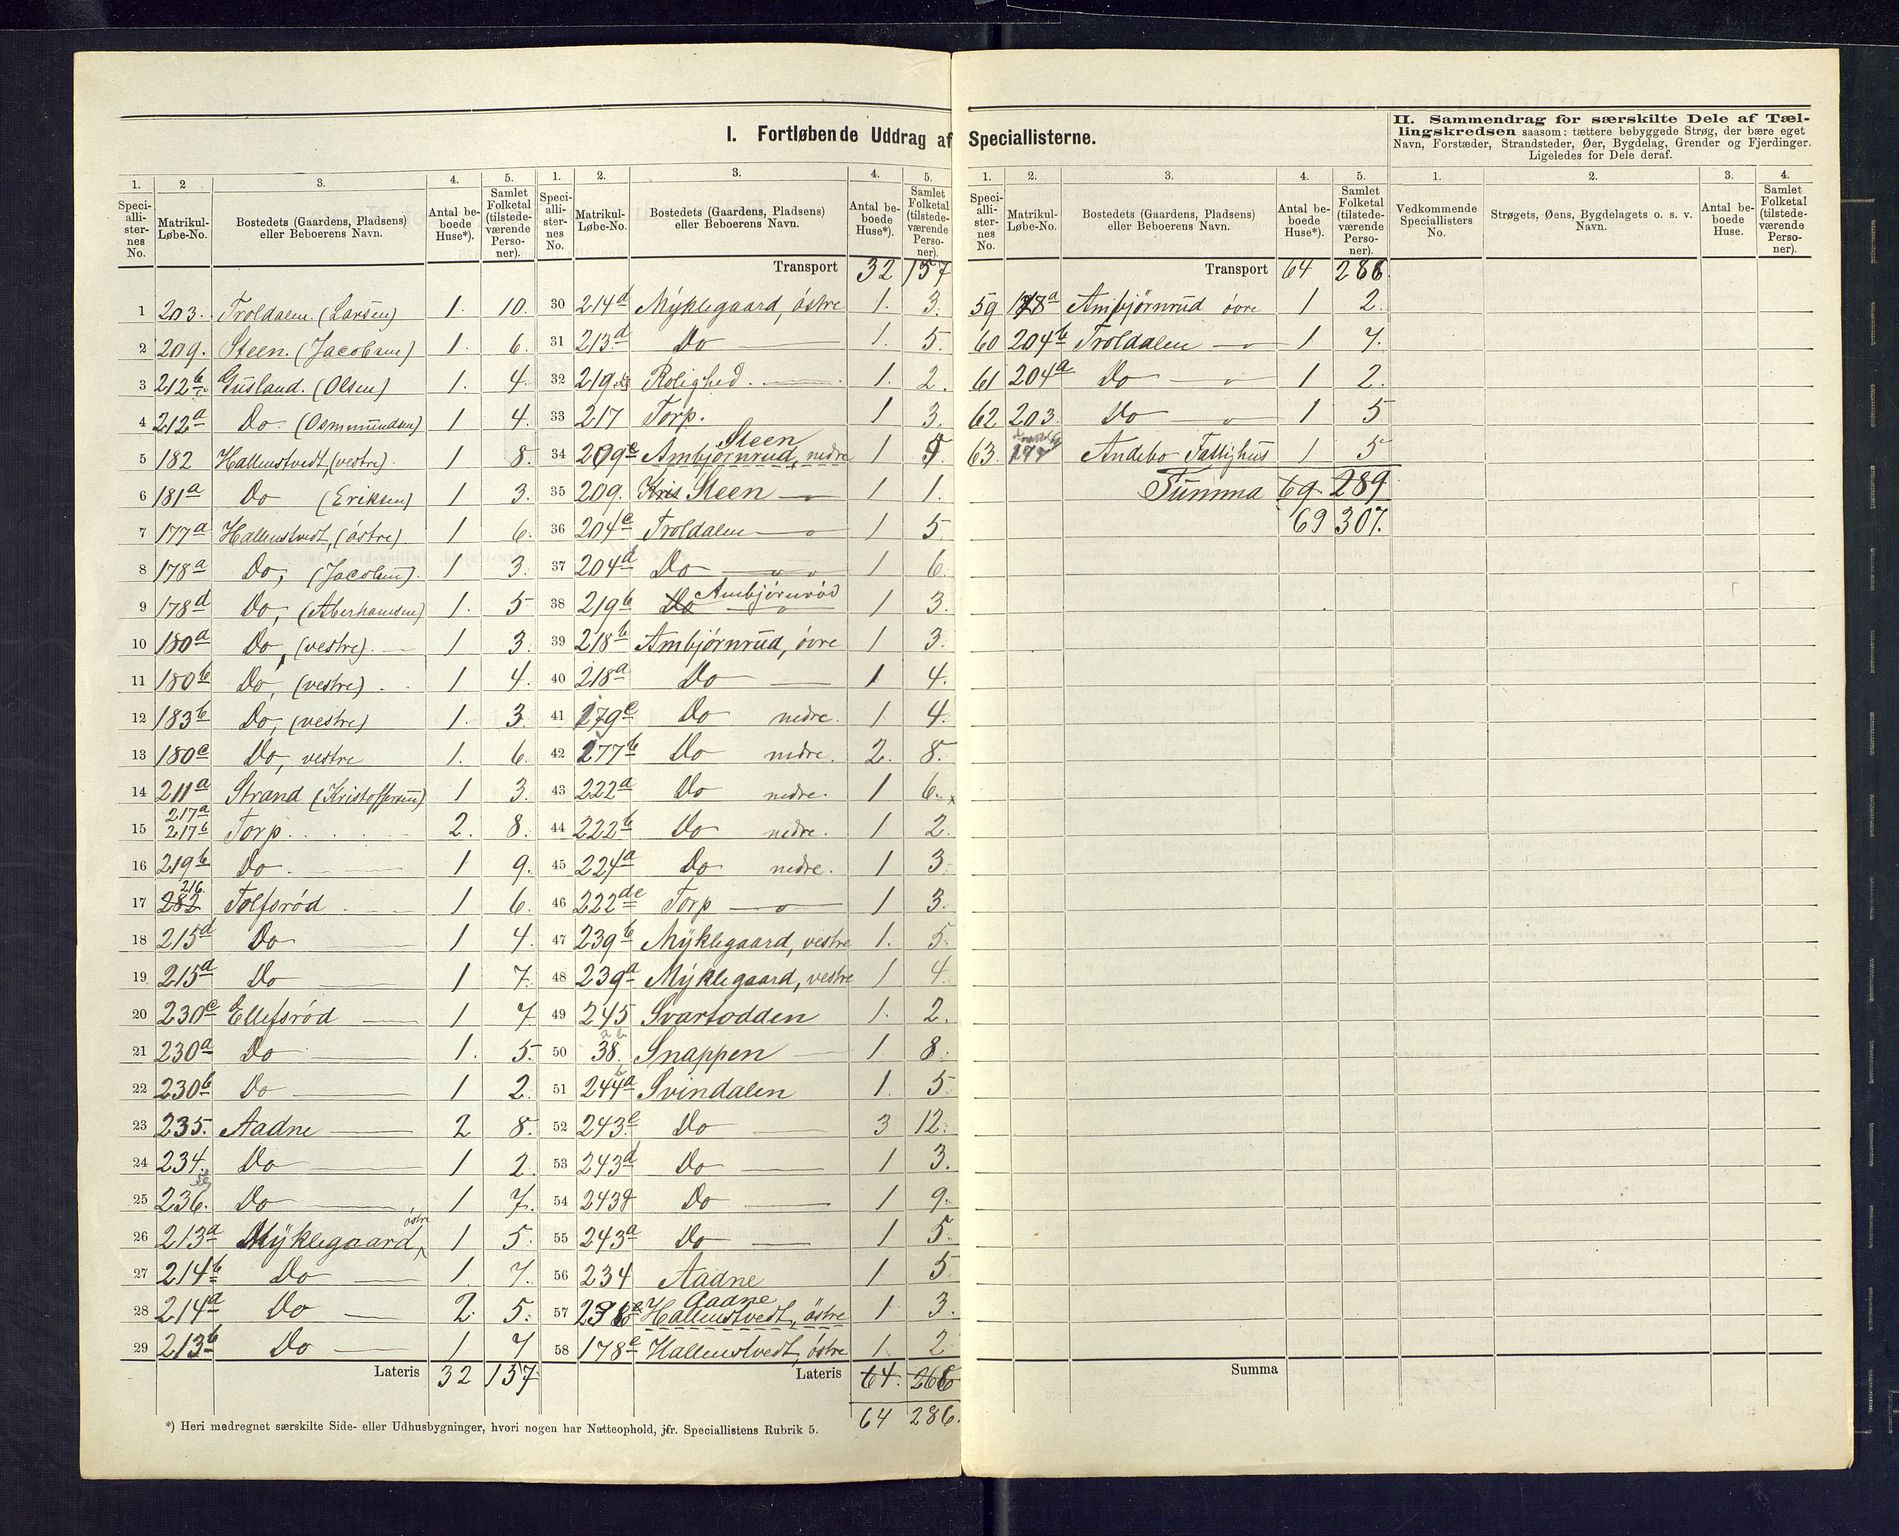 I. Fortløbende Uddrag af Speciallisterne.
II. Sammendrag for særskilte Dele af Tællingskredsen saasom: tættere bebyggede Strøg, der bære eget Navn, Forstæder, Strandsteder, Øer, Bygdelag, Grender og Fjerdinger. Ligeledes for Dele deraf.
1. 2 3. 4. 5.
Speciallisternes No. Matrikul-Løbe-No. Bostedets (Gaardens, Pladsen) eller Beboerens Navn. Antal beboede Huse*). Samlet Folketal (tilstedeværende Personer).
1 203. Troldalen (Larsen) 1. 10.
2 209. Steen. (Jacobsen) 1. 6.
3 212b Gusland. (Olsen) 1. 4.
4 212a Do. (Osmundsen) 1 4.
5 182 Hallenstvedt, (vestre). 1 8.
6 181a Do (Eriksen) 1 3.
7 177a Hallenstvedt, (østre) 1 6.
8 178a Do, (Jacobsen). 1 3.
9 178d Do, (Aberhamsen) 1. 5
10 180a Do, (vestre). 1 3.
11 180b Do, (vestre) 1 4.
12 183b Do, (vestre) 1. 3
13 180c Do, vestre 1. 6.
14 211a Strand (Kristoffersen) 1 3.
15 217a 217b Torp. 2. 8.
16 219b Do. 1 9.
17 282 216. Tolfsrød 1 6.
18 215d Do 1 4.
19 215d Do 1 7.
20 230c Ellefsrød 1 7
21 230a Do 1. 5.
22 230b Do 1 2.
23 235. Aadne 2 8.
24 234. Do 1 2.
25 236. Do 1 7.
26 213a Myklegaard, østre 1 5.
27 214b Do 1. 7.
28 214a Do 2. 5.
29 213b Do 1 7
Lateris 32 157
1. 2. 3. 4. 5.
Speciallisternes No. Matrikul-Løbe-No. Bostedets (Gaardens, Pladsen) eller Beboerens Navn. Antal beboede Huse*). Samlet Folketal (tilstedeværende Personer).
Transport 32 157
30 214d Myklegaard, østre 1. 3.
31 213d Do 1. 5.
32 219 Rolighed. 1. 2.
33 217 Torp. 1 3.
34 209e Ambjørnrud, nedre Steen 1
35 209. Kris Steen 1 1.
36 204c Troldalen 1 5
37 204d Do 1 6.
38 219b Do Ambjørnrød 1 3.
39 218b Ambjørnrud, øvre 1 3.
40 218a Do 1 4.
41 179c Do nedre. 1. 4.
42 177b Do nedre. 2. 8.
43 222a Do nedre. 1 6.
44 222b Do nedre. 1 2.
45 224a Do nedre. 1 3.
46 222de Torp 1 3.
47 239b Myklegaard, vestre 1. 5.
48 239a Myklegaard, vestre 1 4.
49 245 Svartodden 1. 2.
50 38. Snappen 1 8.
51 244a Svindalen 1. 5
52 243c Do 3 12.
53 243d Do 1 3.
54 243 Do 1 9.
55 243a Do 1 5.
56 234 Aadne 1 5
57 Hallenstvedt, østre Aadne 1 3.
58 178e Hallenstvedt, østre 1. 2
Lateris 64. 268
64 286.
*) Heri medregnet særskilte Side- eller Udhusbygninger, hvori nogen har Natteophold, jfr. Speciallistens Rubrik 5.
1. 2. 3. 4. 5.
Speciallisternes No. Matrikul-Løbe-No. Bostedets (Gaardens, Pladsen) eller Beboerens Navn. Antal beboede Huse*). Samlet Folketal (tilstedeværende Personer).
Transport 64 286.
59 178a Ambjørnrud øvre 1 2.
60 204b Troldalen 1 7.
61 204a Do 1 2.
62 203. Do 1 5
63. Andebo Fattighus 1 5
Summa 69. 289
69 307.
Summa
1. 2. 3. 4.
Vedkommende Speciallisters No. Strøgets, Øens, Bygdelagets o. s. v. Navn. Antal beboede Huse. Samlet Folketal (tilstedeværende Personer).